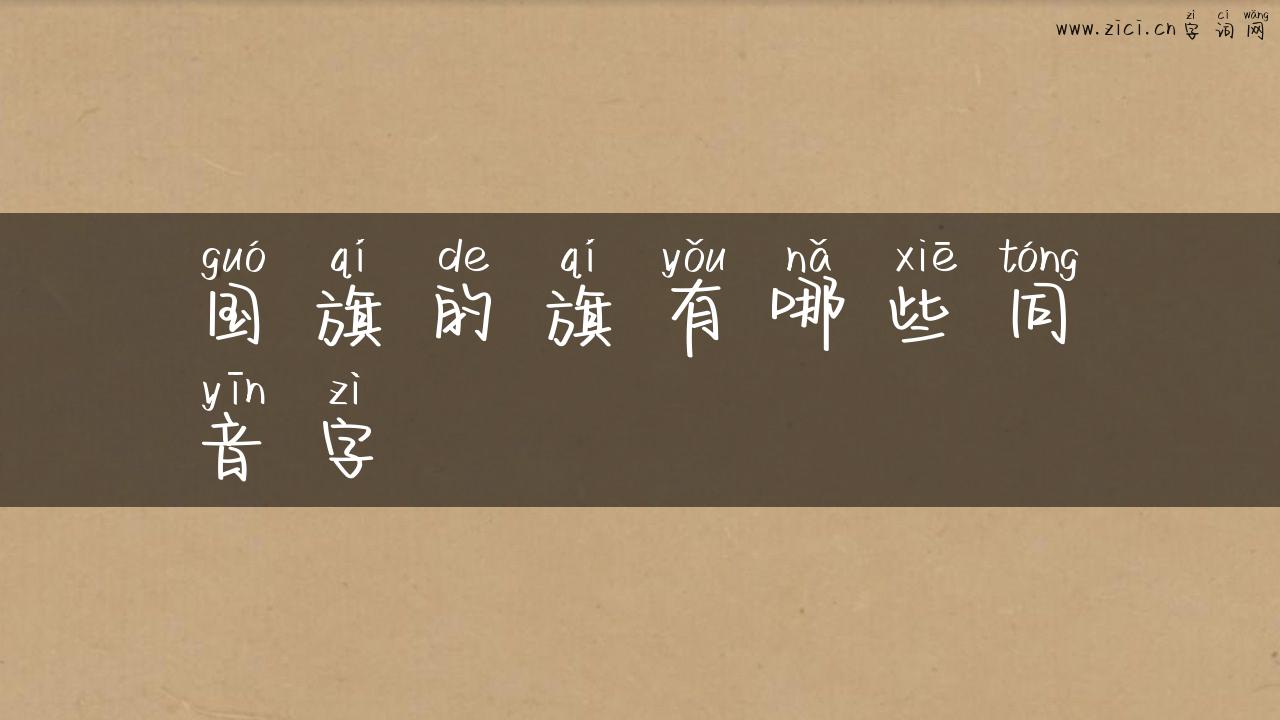 zì cí wǎng
www.zici.cn 字词网
guó qí de qí yǒu nǎ xiē tóng
国旗的旗有哪些同
yīn zì
音字